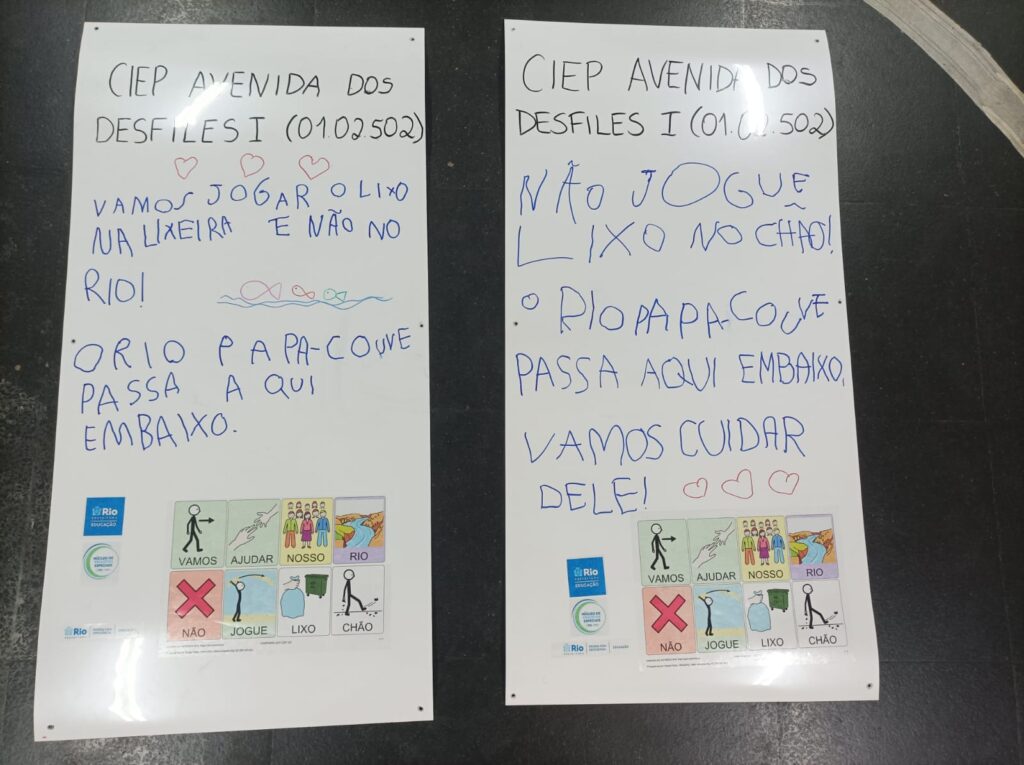 CIEP AVENIDA DOS
DESFILES I (01.02.502)
VAMOS JOGAR O LIXO
NA LIXEIRA E NÃO NO
RIO!
O RIO PAPA-COUVE
PASSA A QUI
EMBAIXO.
Rio
PREFEITURA
EDUCAÇÃO
VAMOS AJUDAR NOSSO RIO
NÃO JOGUE LIXO CHÃO
Rio
CIEP AVENIDA DOS
DESFILES I (01.02.502)
NÃO JOGUE
LIXO NO CHÃO!
O RIO PAPA-COUVE
PASSA AQUI EMBAIXO.
VAMOS CUIDAR
DELE!
Rio
PREFEITURA
EDUCAÇÃO
VAMOS AJUDAR NOSSO RIO
NÃO JOGUE LIXO CHÃO
Rio